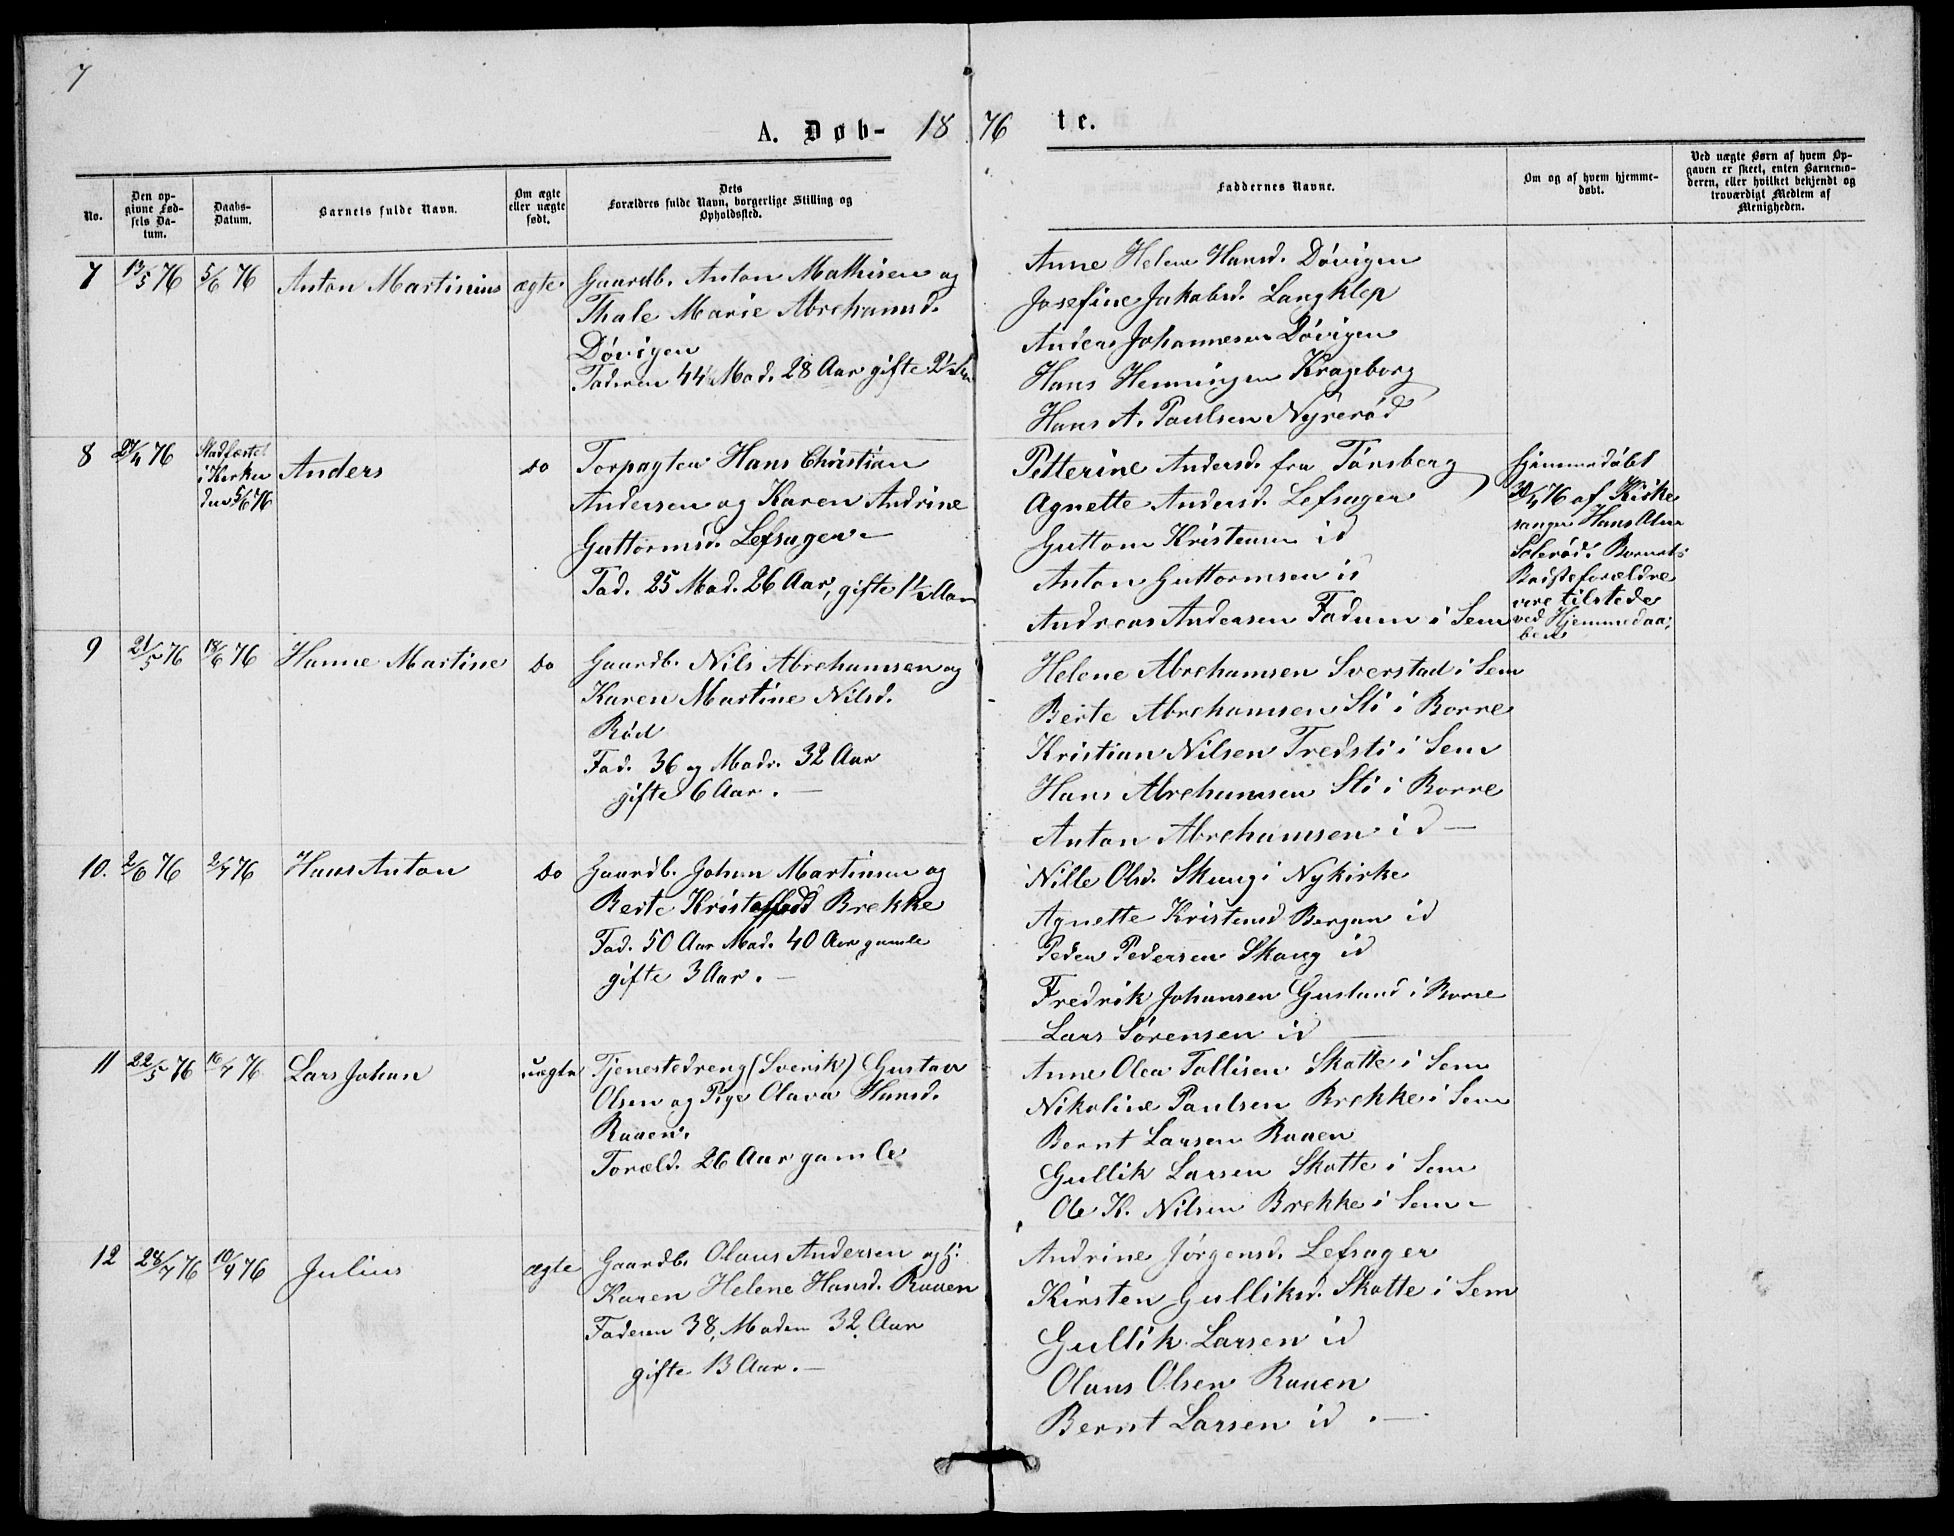 7
A. Døb- 18 76 te.
No.
Den op-
givne Fød-
sels Da-
tum.
Daabs-
Datum.
Barnets fulde Navn.
Om ægte
eller uægte
født.
Dets
Forældres fulde Navn, borgerlige Stilling og
Opholdssted.
Faddernes Navne.
Om og af hvem hjemme-
døbt.
Ved uægte Børn af hvem Op-
gaven er skeet, enten Barnemo-
deren, eller hvilket bekjendt og
troværdigt Medlem af
Menigheden.
7 13/5 76 5/6 76 Anton Martinius ægte
Gaardb. Anton Mathisen og
Thale Marie Abrehamsd.
Døvigen
Faderen 44 Mod. 28 Aar gifte 2
Anne Helene Hansd. Døvigen
Josefine Jakobsd. Langklep
Anders Johannesen Døvigen
Hans Henningsen Krageborg
Hans A. Paulsen Nyrerød
8 27/4 76
Stadfæstet
i Kirken
den 5/6 76
Anders do
Forpagter Hans Christian
Andersen og Karen Andrine
Guttormsd. Lefsager
Fad. 25 Mod. 26 Aar, gifte 1/2 Aar
Petterine Andersd. fra Tønsberg
Agnette Andersd. Lefsager
Guttorm Kristensen id
Anton Guttormsen id
Andreas Andersen Fadum i Sem
Hjemmedøbt
30/4 76 af Kirke
sanger Hans Olsen
Solerød. Barnets
Bedsteforældre
vare tilstede
ved Hjemmedaa-
ben
9 21/5 76 18/6 76 Hanne Martine do
Gaardb. Nils Abrehamsen og
Karen Martine Nilsd.
Rød
Fad. 36 og Modr. 32 Aar
gifte 6 Aar.
Helene Abrehamsen Sverstad i Sem
Berte Abrehamsen Sti i Borre
Kristian Nilsen Tredsti i Sem
Hans Abrehamsen Sti i Borre
Anton Abrehamsen id
10. 2/6 76 2/7 76 Hans Anton do
Gaardb. Johan Martinsen og
Berte Kristoffersd Brekke
Fad. 50 Aar Mod. 40 Aar gamle
gifte 3 Aar.
Nille Olsd. Skaug i Nykirke
Agnette Kristensd Bergan id
Peder Pedersen Skaug id
Fredrik Johansen Gusland i Borre
Lars Sørensen id
11 22/5 76 16/7 76 Lars Johan uægte
Tjenestedreng (Svensk) Gustav
Olsen og Pige Olava Hansd.
Rauen.
Foræld. 26 Aar gamle
Anne Olea Tollisen Skotte i Sem
Nikoline Paulsen Brekke i Sem
Bernt Larsen Rauen
Gullik Larsen Skotte i Sem
Ole K. Nilsen Brekke i Sem
12 28/7 76 10/9 76 Julius ægte
Gaardb. Olaus Andersen og H.
Karen Helene Hansd. Rauen
Faderen 38, Moderen 32 Aar
gifte 13 Aar.
Andrine Jørgensd. Lefsager
Kirsten Gulliksd. Skotte i Sem
Gullik Larsen id
Olaus Olsen Rauen
Bernt Larsen id.